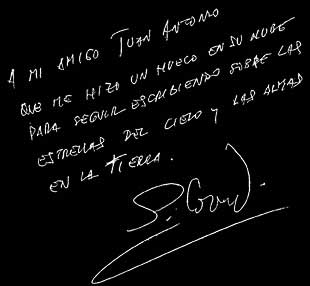 A MI AMIGO JUAN ANTONIO
QUE ME HIZO UN HUECO EN SU NUBE
PARA SEGUIR ESCRIBIENDO SOBRE LAS
ESTRELLAS DEL CIELO Y LAS ALMAS
EN LA TIERRA.